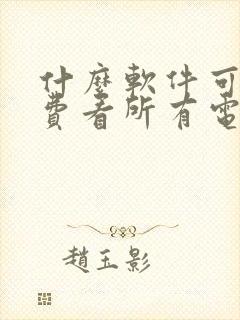 什麼軟件可
費看所有電
趙玉影